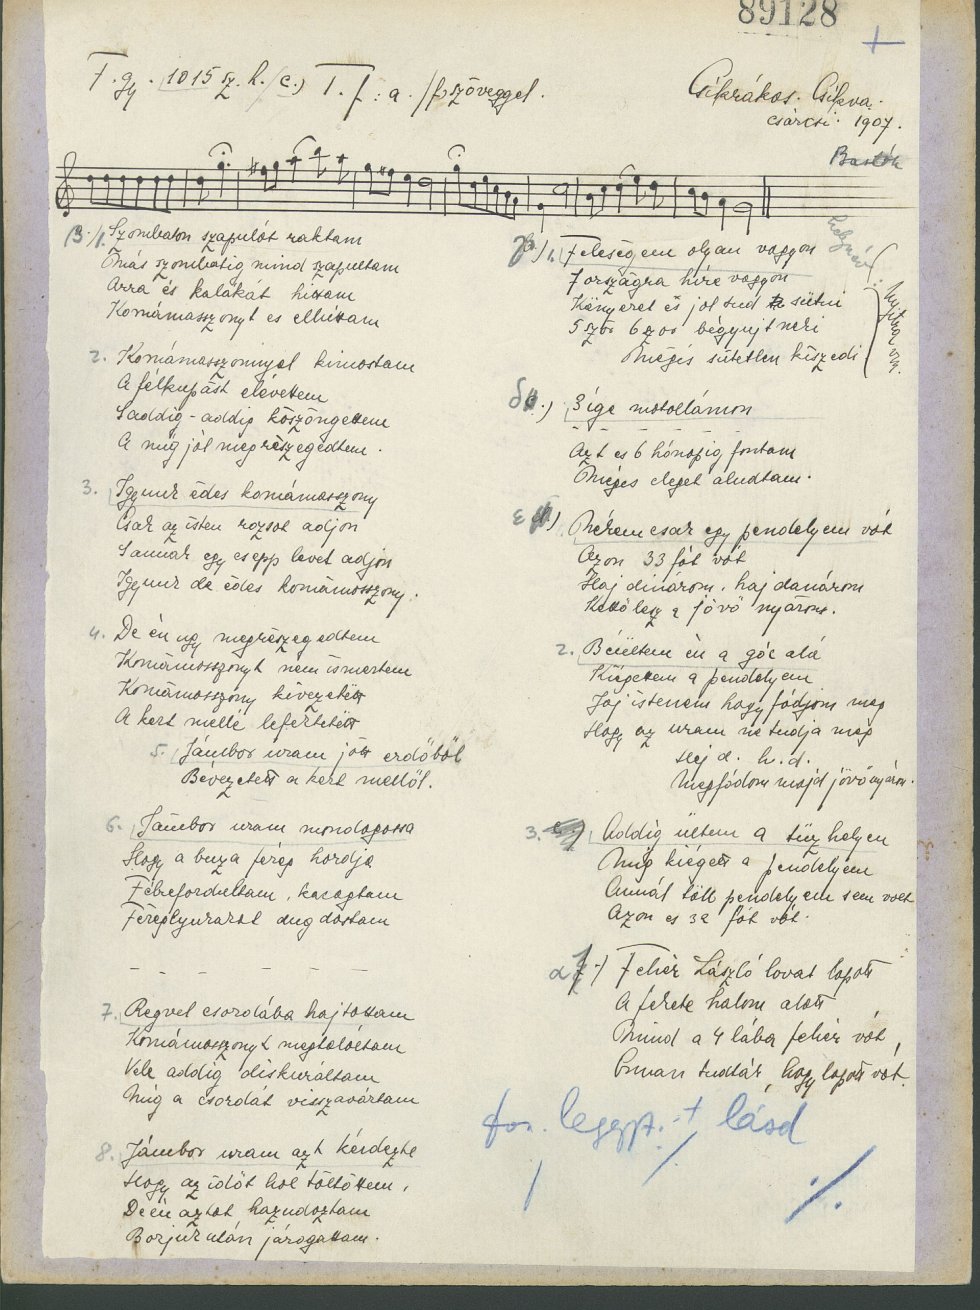 89128
F. gy. 1015 sz. h. (c.) T. f: a. /f szöveggel.
Csíkrákos. Csíkva-
csárcsi. 1907.
Bartók
β./1. Szombaton szapulót raktam
Más szombatig mind szapultam
Arra és kalákát hittam
Komámasszonyt es elhittam
2. Komámasszonnyal kimostam
A félkupást elévettem
S addig-addig köszöngettem
A míg jól megrészegedtem.
3. Igyunk édes komámasszony
Csak az isten rozsot adjon
S annak egy csepp levet adjon
Igyunk de édes komámasszony.
4. De én ugy megrészegedtem
Komámasszonyt nem ismertem
Komámasszony kivezetett
A kert mellé lefektetett
5. Jámbor uram jött erdőből
Bévezetett a kert mellől.
6. Jámbor uram mondogassa
Hogy a buza féreg hordja
Félrefordultam, kacagtam
Féreglyukakat dugdostam
7. Regvel csordába hajtottam
Komámasszonyt megtaláltam
Vele addig diskuráltam
Míg a csordát visszavártam
8. Jámbor uram azt kérdezte
Hogy az időt hol töltöttem,
De én aztot hazudoztam
Borjuk után járogattam.
γ ) 1. Feleségem olyan vagyon
7 országra híre vagyon
Kenyeret és jol tud sütni
5 ször 6 szor bégyujt neki
Mégis sületlen kiszedi
δ .) 3 ige motollámon
Azt es 6 hónapig fontam
Mégis eleget aludtam.
ε ) Nékem csak egy pendelyem vót
Azon 33 fót vót
Haj dinárom, haj danárom
Kettő lesz a jövő nyáron.
2. Béültem én a góc alá
Kiégettem a pendelyem
Jaj istenem hogy fódjom meg
Hogy az uram ne tudja meg
Hej d. h. d.
Megfódom majd jövő nyáron.
3. Addig ültem a tüz helyen
Míg kiégett a pendelyem
Annál több pendelyem sem volt
Azon es 32 fót vót.
α .) Fehér László lovat lopott
A fekete halom alatt
Mind a 4 lába fehér vót,
Onnan tudták, hogy lopott vót.
lásd
%.